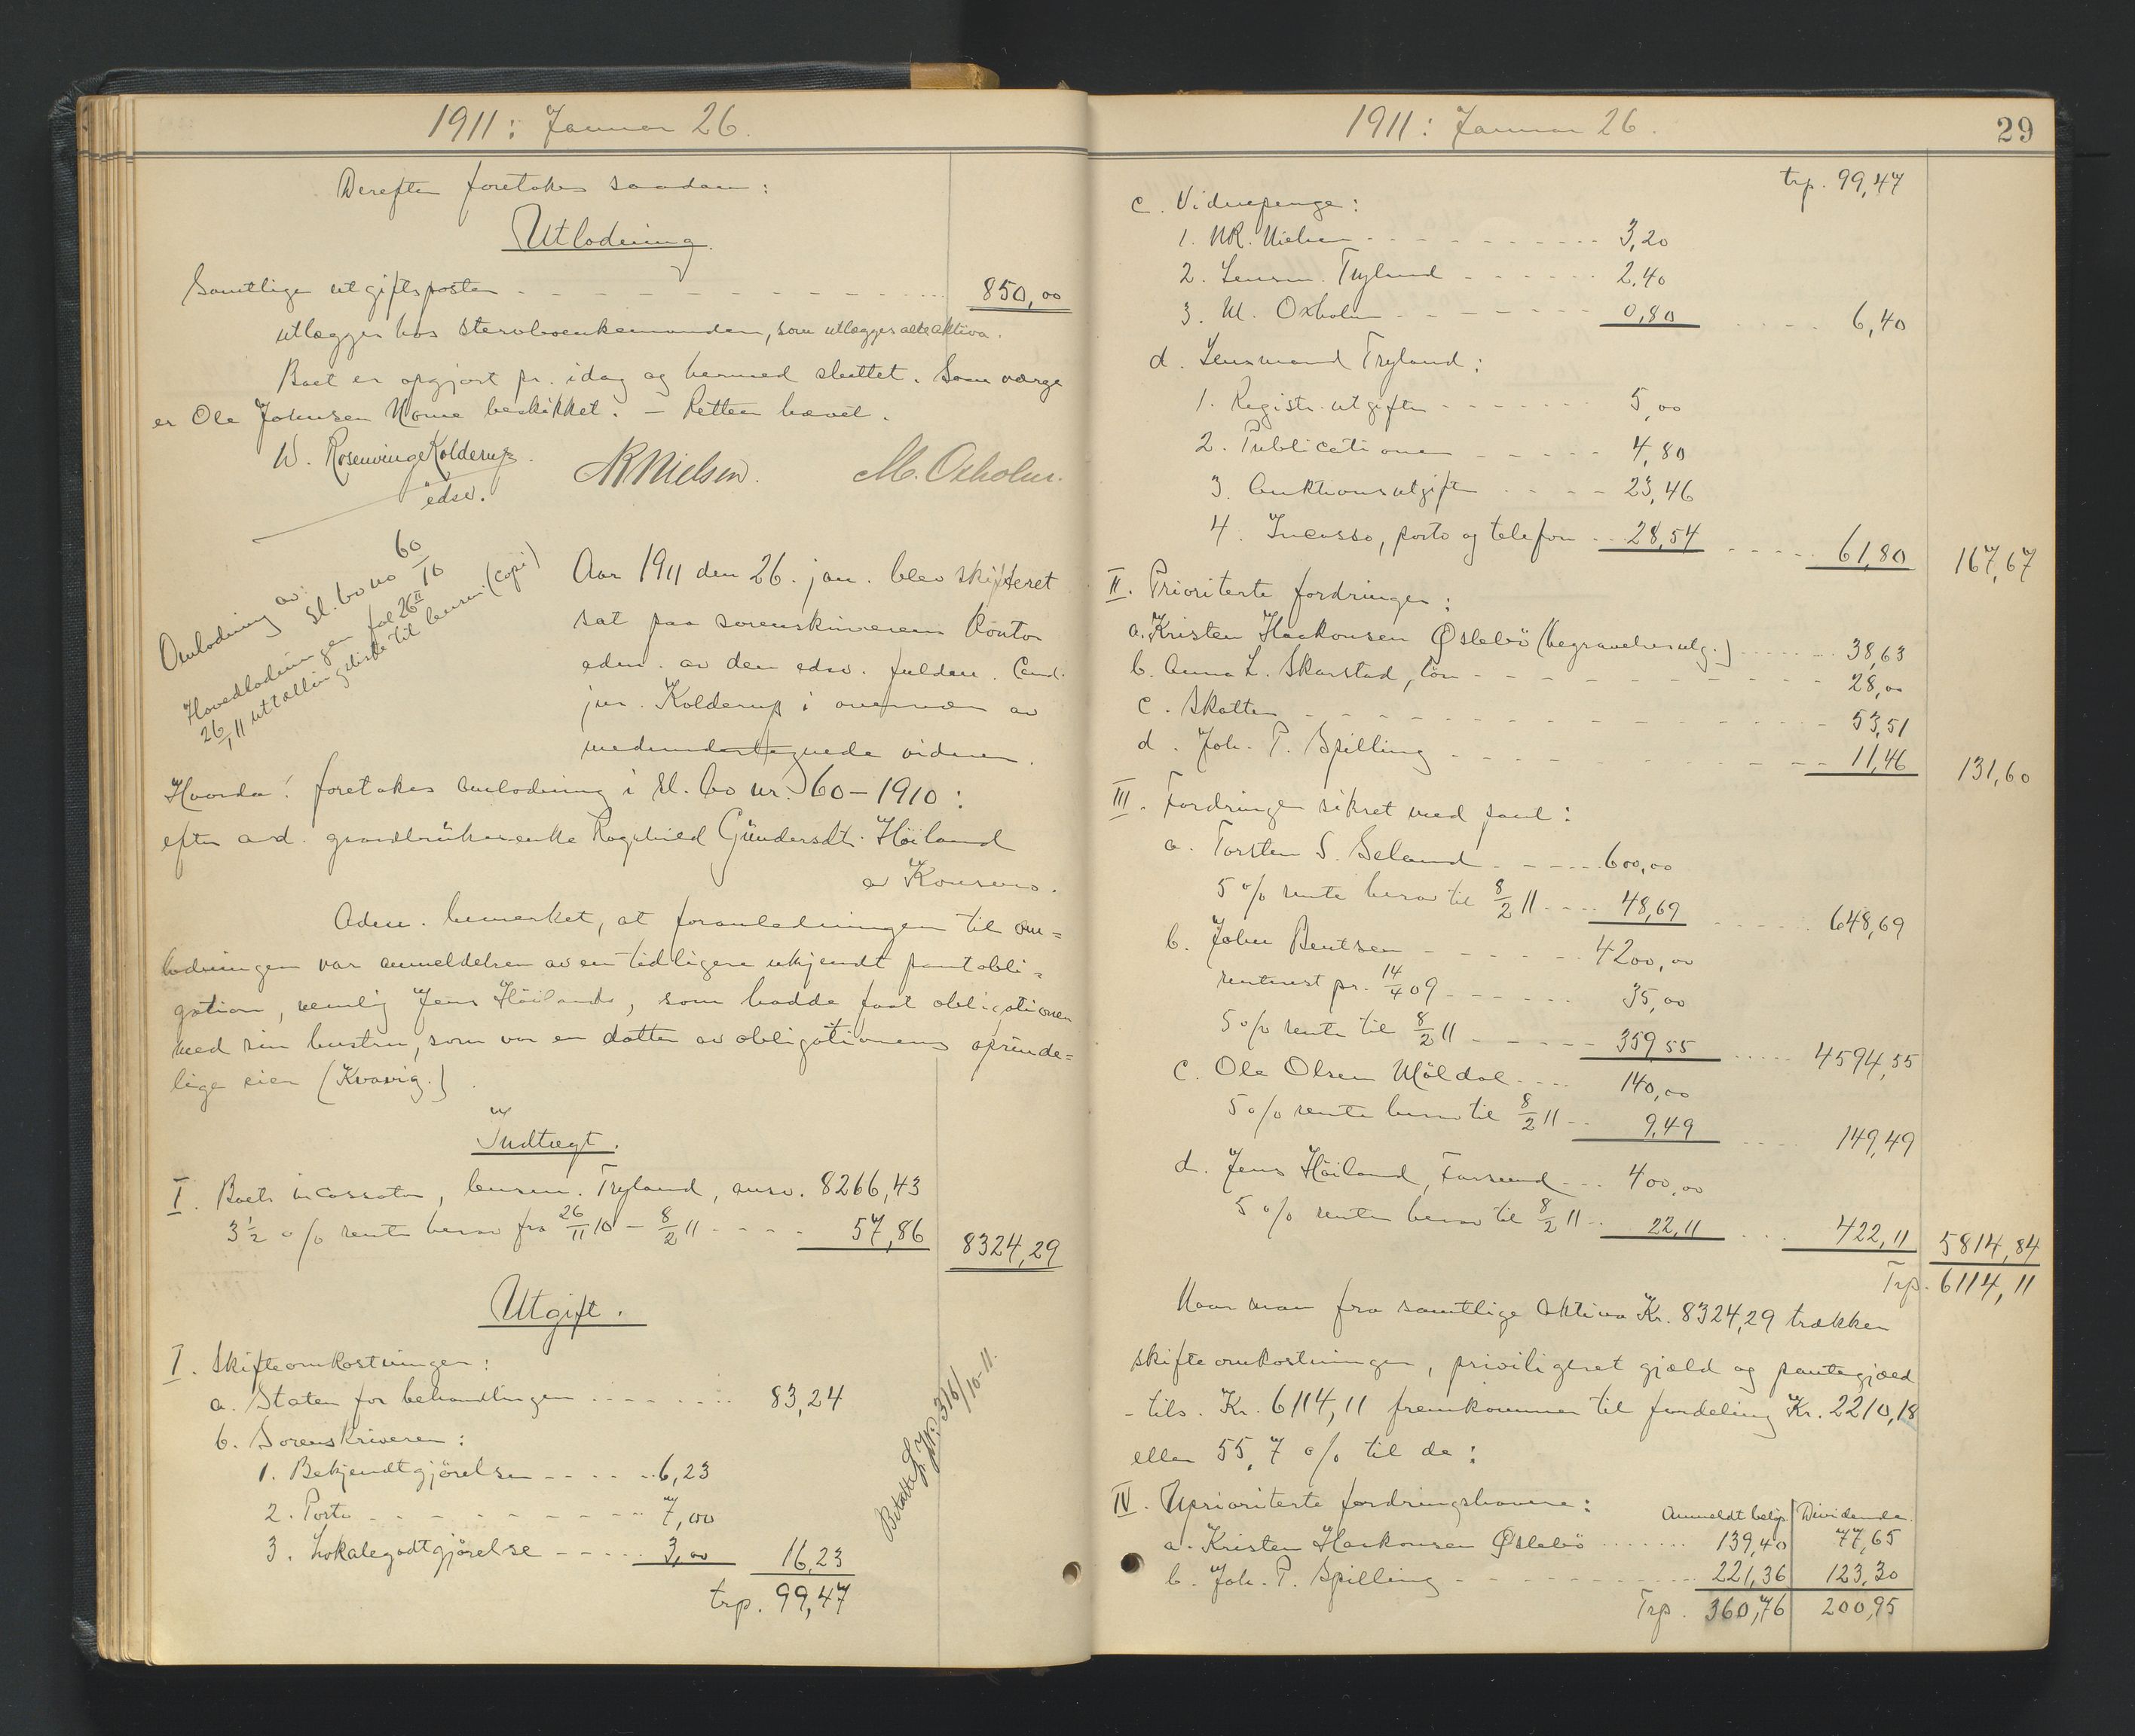 1911: Januar 26.
Derefter foretokes saadan:
Utlodning.
Samtlige utgiftsposter 850,00
utlægges hos stervboenkemanden, som utlægges alle aktiva.
Boet er opgjort pr. idag og hermed sluttet. Som værge
er Ole Johnsen Home beskikket. – Retten hævet.
W. RosenvingeKolderup.
edsv.
NRNielsen.
M. Oxholm.
Omlodning av:
sl. bo no 60/10
Hovedlodningen fol 26 II
26/1 11 uttællingsliste til lensm. (copi)
Aar 1911 den 26. jan. blev skifteret
sat paa sorenskriverens kontor
adm. av den edsv. fuldm. Cand.
jur. Kolderup i overvær av
medundertegnede vidner.
Hvorda: foretokes omlodning i sl. bo nr. 60–1910:
efter avd. gaardbrukerenke Ragnhild Gundersdt. Høiland
av Konsmo.
Adm. bemerket, at foranledningen til om=
lodningen var anmeldelsen av en tidligere ukjendt pantobli=
gation, nemlig Jens Høilands, som hadde faat obligationen
med sin hustru, som var en datter av obligationens oprinde=
lige eier (Kvavig.)
Indtægt.
I. Boets incassator, lensm. Tryland, ansv. 8266,43
3 1/2 o/o rente herav fra 26/11 10 – 8/2 11 57,86 8324,29
Utgift.
I. Skifteomkostninger:
a. Staten for behandlingen 83,24
b. Sorenskriveren:
1. Bekjendtgjørelser 6,23
2. Porto 7,00
3. Lokalegodtgjørelse 3,00 16,23
trp. 99,47
316/10-11.
1911: Januar 26.
29
trp. 99,47
c. Vidnepenge:
1. NR. Nielsen 3,20
2. Lensm. Tryland 2,40
3. M. Oxholm 0,80 6,40
d. Lensmand Tryland:
1. Registr. utgifter 5,00
2. Publicationer 4,80
3. Auktionsutgifter 23,46
4. Incasso, porto og telefon 28,54 61,80 167,67
II. Prioriterte fordringer:
a. Kristen Haakonsen Øslebø (begravelsesutg.) 38,63
b. Anna L. Skarstad, løn 28,00
c. Skatter 53,51
d. Joh. P. Spilling 11,46 131,60
III. Fordringer sikret med pant:
a. Torsten S. Seland 600,00
5 o/o rente herav til 8/2 11 48,69 648,69
b. John Bentsen 4200,00
renterest pr. 14/4 09 35,00
5 o/o rente til 8/2 11 359,55 4594,55
c. Ole Olsen Møldal 140,00
5 o/o rente herav til 8/2 11 9,49 149,49
d. Jens Høiland, Farsund 400,00
5 o/o renter herav til 8/2 11 22,11 422,11 5814,84
Trp. 6114,11
Naar man fra samtlige aktiva Kr. 8324,29 trækker
skifteomkostninger, priviligeret gjæld og pantegjæld
– tils. Kr. 6114,11 fremkommer til fordeling Kr. 2210,18
eller 55,7 o/o til de:
IV. Uprioriterte fordringshavere: Anmeldt beløp. Dividende.
a. Kristen Haakonsen Øslebø 139,40 77,65
b. Joh. P. Spilling 221,36 123,30
Trp. 360,76 200,95